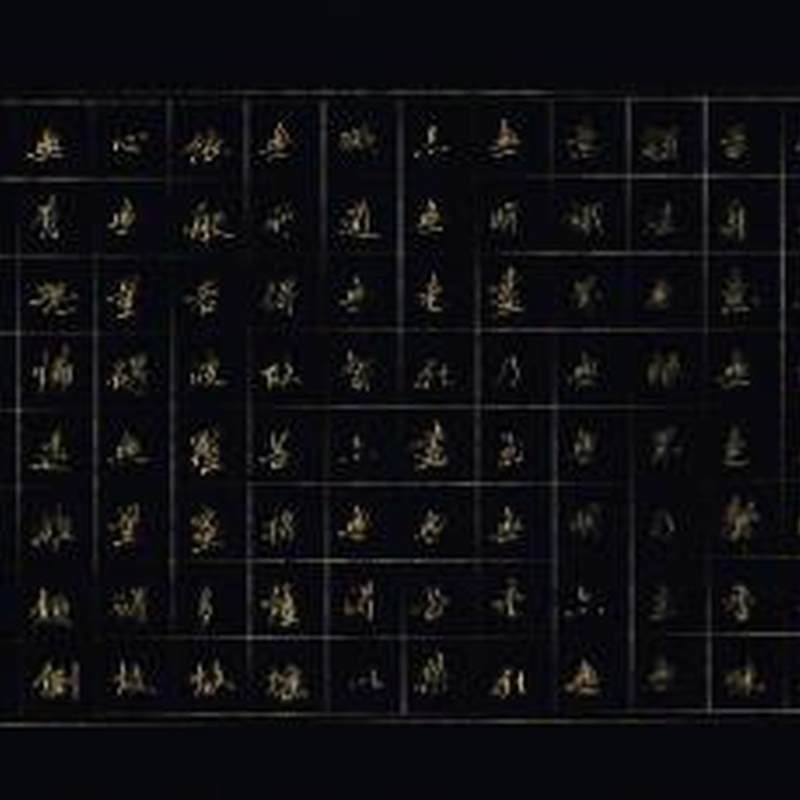 舌身意無色聲香味
觸法無眼界乃至無
意識界無無明亦無
無明盡乃至無老死
亦無老死盡無苦集
滅道無智亦無得以
無所得故菩提薩埵
依般若波羅蜜多故
心無罣礙無罣礙故
無有恐怖遠離顛倒